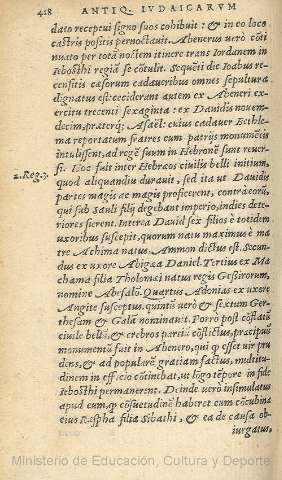 428 ANTIQ. IVDAICARVM
dato receptui signo suos cohibuit: & in eo loco
castris positis pernoctauit. Abenerus verò cōti
nuato per totā noctem itinere trans Iordanem in
Isbosthi regiā se cōtulit. Sequēti die Ioabus re-
censitis cæsorum cadaueribus omnes sepultura
dignatus est: ceciderant autem ex Abeneri ex-
ercitu trecenti sexaginta: ex Dauidis nouem-
decim, præterq; Asaël: cuius cadauer Bethle-
ma reportatum fratres cum patrijs monumētis
intulissent, ad regē suum in Hebronē sunt reuer-
si. Hoc fuit inter Hebræos ciuilis belli initium,
2. Reg. 3.
quod aliquandiu durauit, sed ita ut Dauidis
partes magis ac magis proficerent, contrà eorū,
qui sub Sauli filij degebant imperio, indies dete-
riores fierent. Interea Dauid sex filios è totidem
uxoribus suscepit, quorum natu maximus è ma
tre Achima natus, Ammon dictus est. Secun-
dus ex uxore Abigæa Daniel. Tertius ex Ma
chama filia Tholomai natus regis Gessirorum,
nomine Absalō. Quartus Adonias ex uxore
Angite susceptus. quintū verò & sextum Ger-
thesam & Galā nominauit. Porrò post cōflatū
ciuile bellū, & crebros partiū cōflictus, præcipuū
monumentū fuit in Abenero, qui & esset uir pru
dens, & ad populare gratiam factus, multitu-
dinem in officio cōtinebat, ut lōgo tēpore in fide
Isbosthi permanerent. Deinde uerò insimulatus
apud eum, q̃ cōsuetudinē haberet cum cōcubina
eius Ræspha filia Sibathi, & ea de causa ob-
iurgatus,
Ministerio de Educación, Cultura y Deporte